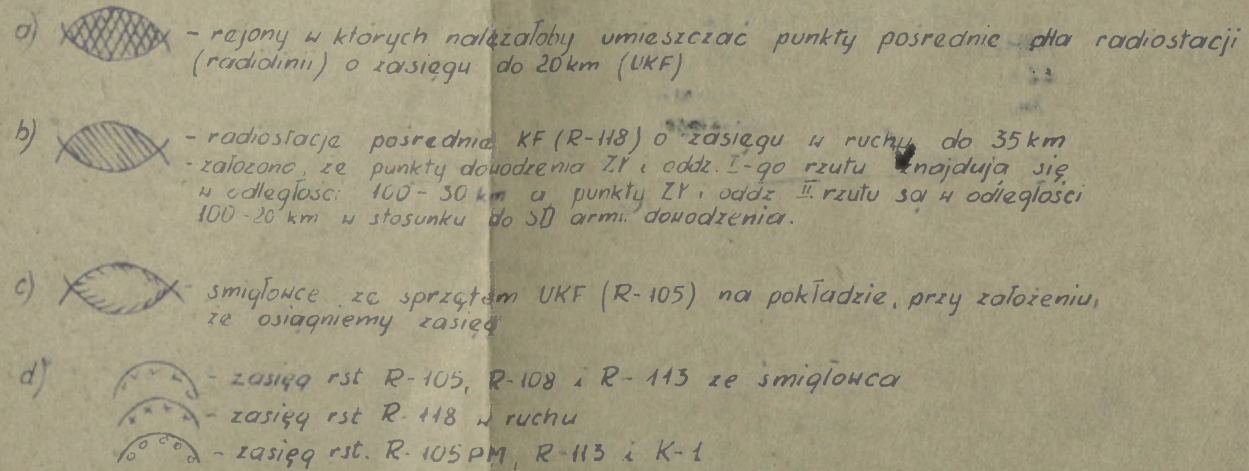 a) - rejony w których należałoby umieszczać punkty pośrednie dla radiostacji
(radiolinii) o zasięgu do 20 km (UKF)
b) - radiostacje pośrednie KF (R-118) o zasięgu w ruchu do 35 km
- założono, że punkty dowodzenia ZT i oddz. I-go rzutu znajdują się
w odległości 100-30 km a punkty ZT i oddz II rzutu są w odległości
100-20 km w stosunku do SD armii dowodzenia.
c) śmigłowce ze sprzętem UKF (R-105) na pokładzie, przy założeniu,
że osiągniemy zasięg
d) - zasięg rst R-105, R-108 i R-113 ze śmigłowca
- zasięg rst R-118 w ruchu
- zasięg rst. R-105PM, R-113 i K-1